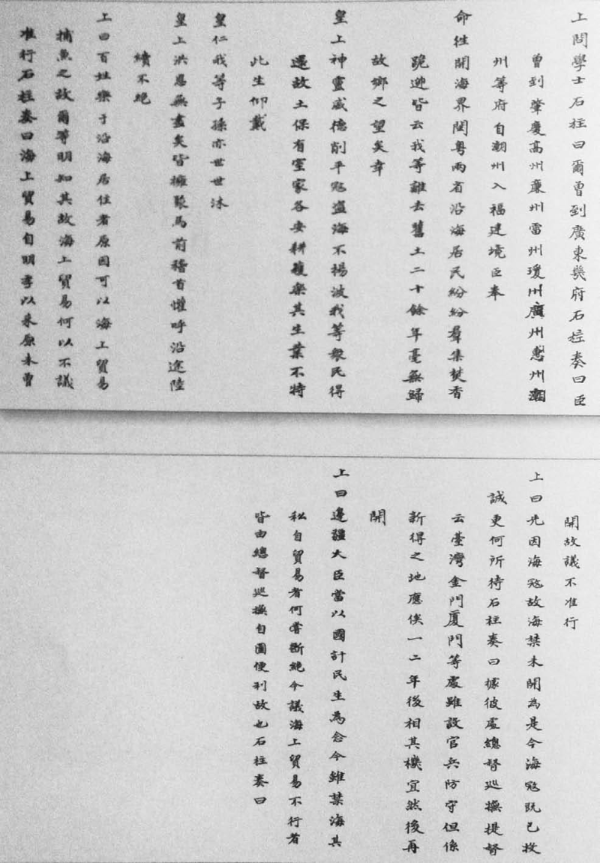 上問學士石柱曰爾曾到廣東幾府石柱奏曰臣
曾到肇慶高州廉州雷州瓊州廣州惠州潮
州等府自潮州入福建境臣奉
命往開海界閩粤兩省沿海居民紛紛羣集焚香
跪迎皆云我等離去舊土二十餘年毫無歸
故鄉之望矣幸
皇上神靈威德削平寇盜海不揚波我等衆民得
還故土保有室家各安耕穫樂其生業不特
此生仰戴
皇仁我等子孫亦世世沐
皇上洪恩無盡矣皆擁聚馬前稽首懽呼沿途陸
續不絕
上曰百姓樂于沿海居住者原因可以海上貿易
捕魚之故爾等明知其故海上貿易何以不議
准行石柱奏曰海上貿易自明季以來原未曾
開故議不准行
上曰先因海寇故海禁未開為是今海寇既已投
誠更何所待石柱奏曰據彼處總督巡撫提督
云臺灣金門厦門等處雖設官兵防守但係
新得之地應俟一二年後相其機宜然後再
開
上曰邊疆大臣當以國計民生為念今雖禁海其
私自貿易者何嘗斷絕今議海上貿易不行者
皆由總督巡撫自圖便利故也石柱奏曰